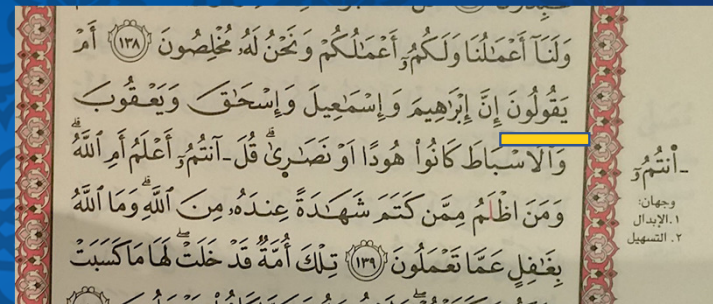 وَلَنَآ أَعۡمَٰلُنَا وَلَكُمُۥٓ أَعۡمَٰلُكُمۡ وَنَحۡنُ لَهُۥ مُخۡلِصُونَ ١٣٨ أَمۡ
يَقُولُونَ إِنَّ إِبۡرَٰهِيمَ وَإِسۡمَٰعِيلَ وَإِسۡحَٰقَ وَيَعۡقُوبَ
وَاَلَاسۡبَاطَ كَانُواْ هُودًا اَوۡ نَصَٰرۭيٰۗ قُلَ ـآنتُمُۥٓ أَعۡلَمُ أَمِ اِ۬للَّهُۗ
وَمَنَ اَظۡلَمُ مِمَّن كَتَمَ شَهَٰدَةً عِندَهُۥ مِنَ اَ۬للَّهِۗ وَمَا اَ۬للَّهُ
بِغَٰفِلٍ عَمَّا تَعۡمَلُونَ ١٣٩ تِلۡكَ أُمَّةٞ قَدۡ خَلَتۡۖ لَهَا مَا كَسَبَتۡ
ـآنتُمُۥٓ
وجهان:
١. الإبدال
٢. التسهيل